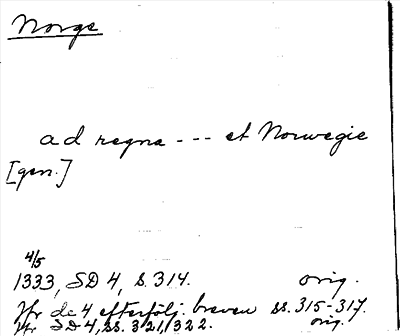 Norge
ad regna --- et Norwegie
[gen.]
4/5
1333, SD 4, s. 314. orig.
Jfr de 4 efterfölj. breven ss. 315-317.
Jfr SD 4, ss. 321, 322. orig.